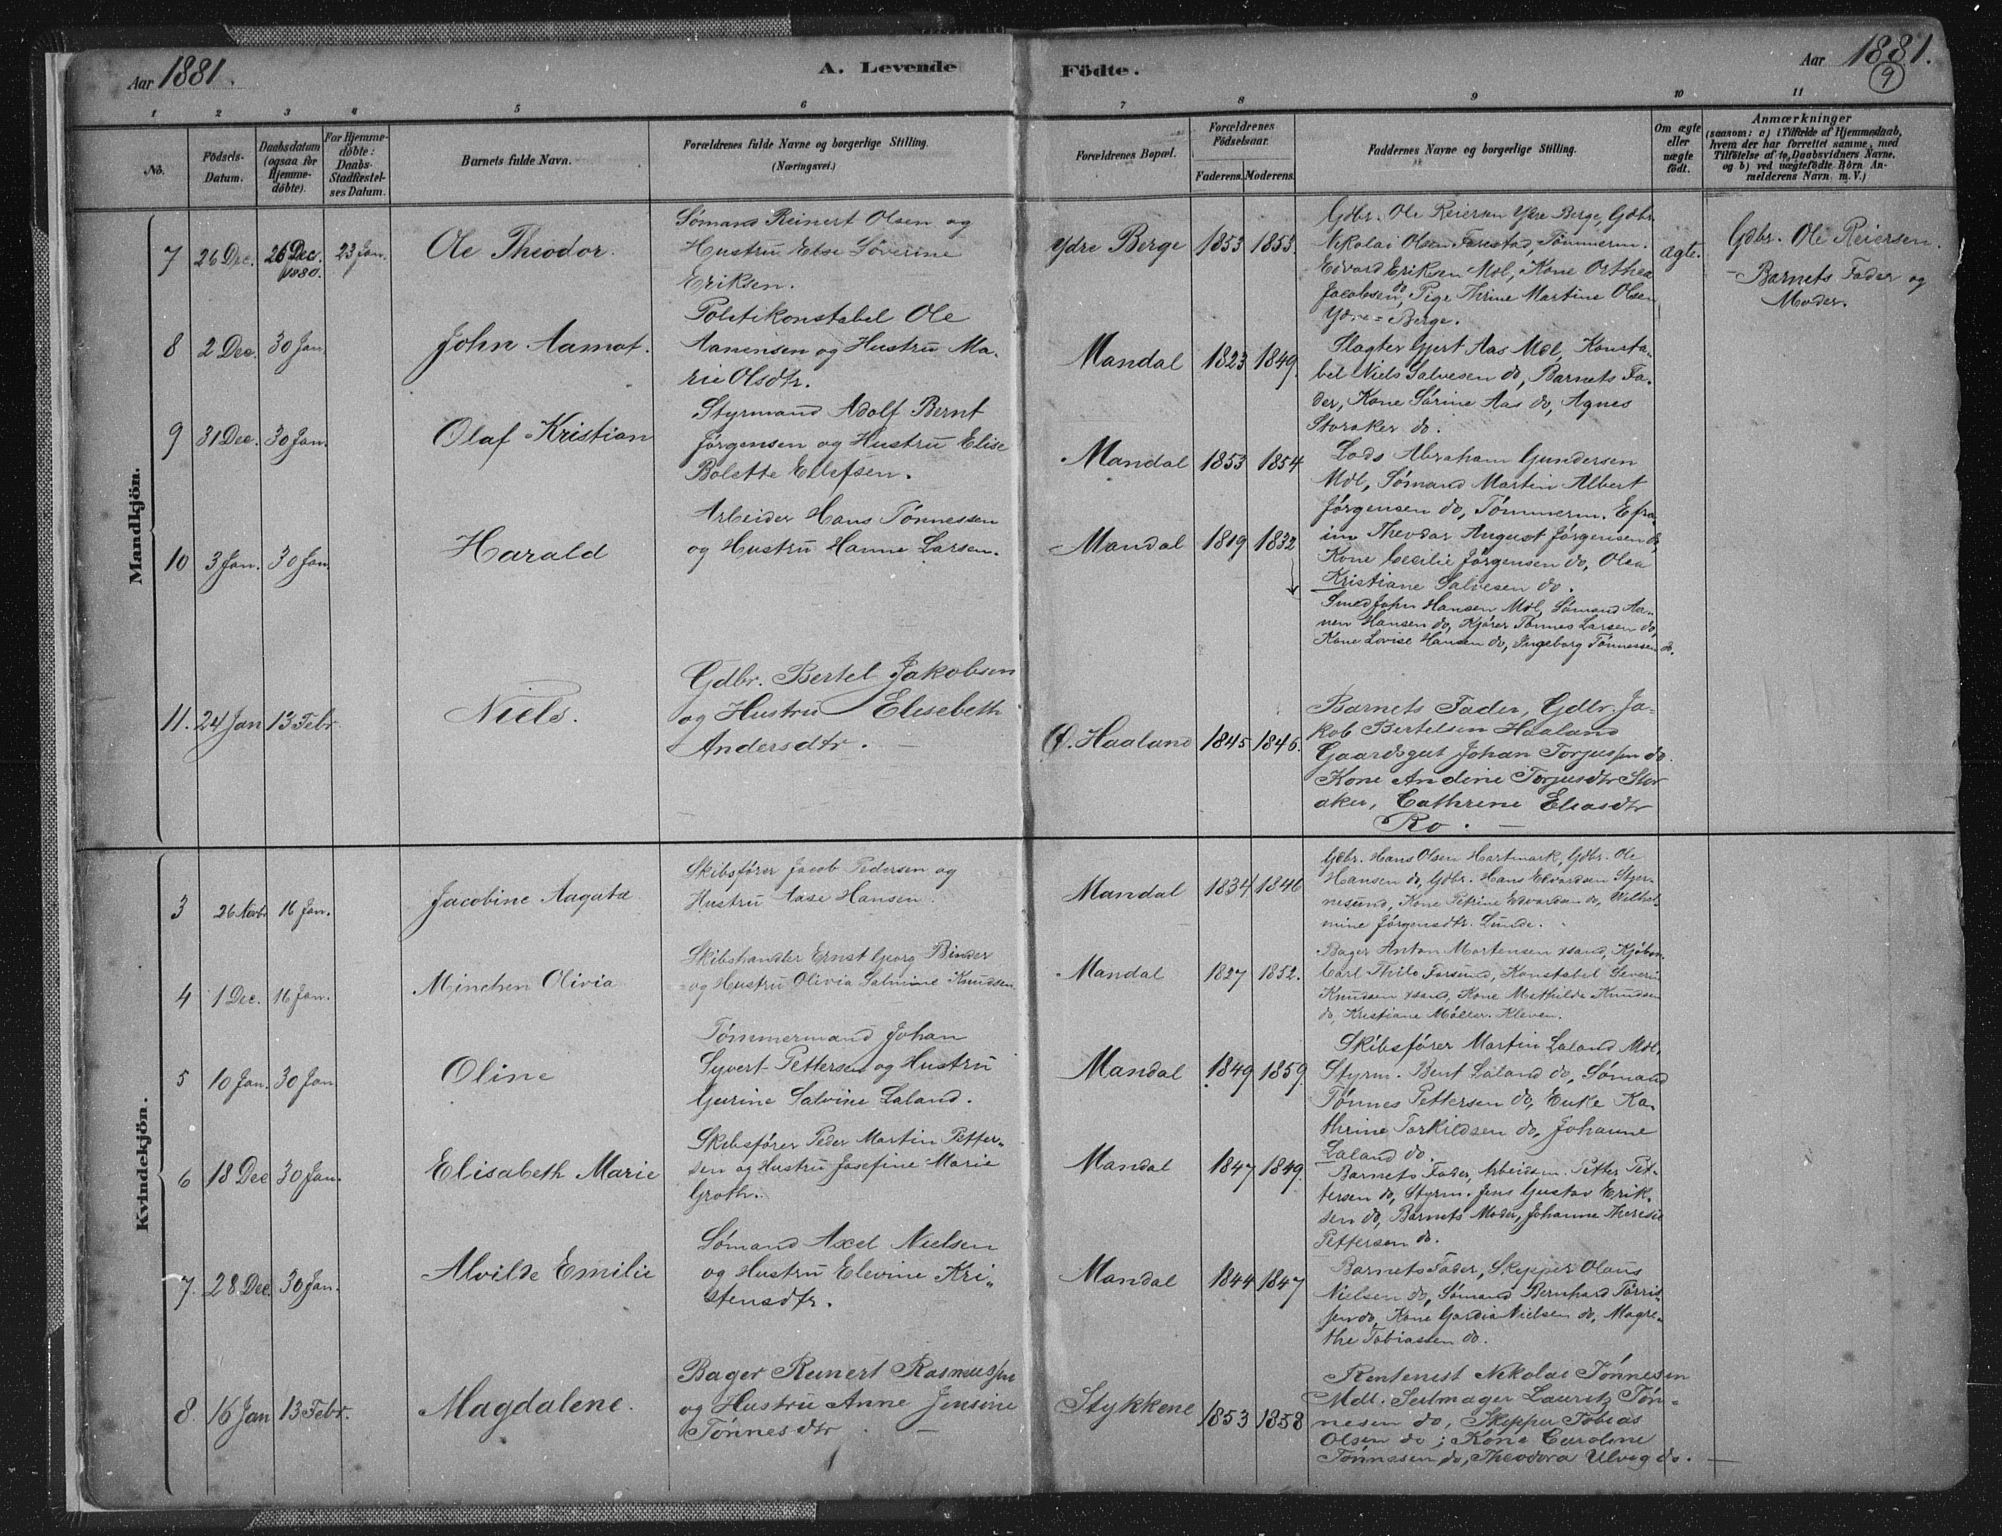 Aar 1881.
A. Levende
Födte.
Aar 1881.
9
1 2 3 4 5 6 7 8 9 10 11
No.
Födsels-
Datum.
Daabsdatum
(ogsaa for
Hjemme-
döbte).
For Hjemme-
döbte:
Daabs-
Stadfæstel-
ses Datum.
Barnets fulde Navn.
Forældrenes fulde Navne og borgerlige Stilling.
(Næringsvei.)
Forældrenes Bopæl.
Forældrenes
Födselsaar.
Faderens. Moderens.
Faddernes Navne og borgerlige Stilling.
Om ægte
eller
uægte
født.
Anmærkninger
(saasom: a) i Tilfælde af Hjemmedaab,
hvem der har forrettet samme, med
Tilföielse af to Daabsvidners Navne,
og b) ved uægtefödte Börn An-
melderens Navn m. V.)
Mandkjön.
7 26 Dec. 26 Dec. 1880. 23 Jan. Ole Theodor.
Sømand Reinert Olsen og
Hustru Else Søverine
Eriksen.
Ydre Berge 1853 1853.
Gdbr. Ole Reiersen Ydre Berge, Gdbr.
Nikolai Olsen Farestad, Tømmerm.
Edvard Eriksen Mdl, Kone Orthea
Jacobsen do, Pige Thrine Martine Olsen
Ydre-Berge.
ægte.
Gdbr. Ole Reiersen.
- Barnets Fader og
Moder.
8 2 Dec. 30 Jan. John Aamot.
Politikonstabel Ole
Aanensen og Hustru Ma-
rie Olsdtr.
Mandal 1823 1849.
Slagter Gjert Aas Mdl, Konsta-
bel Niels Salvesen do, Barnets Fa-
der, Kone Sørine Aas do, Agnes
Storaker do.
9 31 Dec. 30 Jan. Olaf Kristian
Styrmand Adolf Bernt
Jørgensen og Hustru Elise
Bolette Ellefsen.
Mandal 1853 1854
Lods Abraham Gundersen
Mdl, Sømand Martin Albert
Jørgensen do, Tømmerm. Efra-
im Theodor August Jørgensen do,
Kone Cecilie Jørgensen do, Olea
Kristiane Salvesen do.
10 3 Jan. 30 Jan Harald
Arbeider Hans Tønnessen
og Hustru Hanne Larsen.
Mandal 1819 1832
Smed John Hansen Mdl, Sømand Aa-
nen Hansen do, Kjører Tønnes Larsen do,
Kone Lovise Hansen do, Ingeborg Tønnessen do.
11. 24 Jan 13 Febr. Niels.
Gdbr. Bertel Jakobsen
og Hustru Elisebeth
Andersdtr. -
Ø. Haaland 1845 1846.
Barnets Fader, Gdbr. Ja-
kob Bertelsen Haaland
Gaardsgut Johan Torjussen do.
Kone Andine Torjusdtr Stor
aker, Cathrine Eliasdtr
Ro. -
Kvindekjön.
3 26 Novbr 16 Jan. Jacobine Aagata
Skibsfører Jacob Pedersen og
Hustru Aase Hansen.
Mandal 1834 1846
Gdbr. Hans Olsen Hartmark, Gdbr. Ole
Hansen do, Gdbr. Hans Edvardsen Stjer-
nesund, Kone Petrine Edvardsen do, Wilhel-
mine Jørgensdtr. Lunde.
4 1 Dec. 16 Jan. Minchen Olivia
Skibshandler Ernst Georg Binder
og Hustru Olivia Salmine Knudsen
Mandal 1827 1852.
Bager Anton Mortensen xsand, Kjøbm.
Carl Thilo Farsund, Konstabel Severin
Knudsen xsand, Kone Mathilde Knudsen
do, Kristiane Møller. Kleven.
5 10 Jan. 30 Jan Oline
Tømmermand Johan
Syvert Pettersen og Hustru
Gurine Salvine Laland.
Mandal 1849 1859.
Skibsfører Martin Laland Mdl,
Styrm. Bent Laland do, Sømand
Tønnes Pettersen do, Enke Ka-
thrine Torkildsen do, Johanne
Laland do.
6 18 Dec 30 Jan. Elisabeth Marie
Skibsfører Peder Martin Petter-
sen og Hustru Josefine Marie
Groth.
Mandal 1847 1849.
Barnets Fader, Arbeidsm. Petter Pet-
tersen do, Styrm. Jens Gustav Erik-
sen do, Barnets Moder, Johanne Theresie
Pettersen do.
7. 28 Dec. 30 Jan. Alvilde Emilie
Sømand Axel Nielsen
og Hustru Elevine Kri-
stensdtr.
Mandal 1844 1847
Barnets Fader, Skipper Olaus
Nielsen do, Sømand Bernhard Tørris-
sen do, Kone Gardia Nielsen do, Magre-
the Tobiassen do.
8 16 Jan 13 Febr. Magdalene.
Bager Reinert Rasmussen
og Hustru Anne Jensine
Tønnesdtr. -
Stykkene 1853 1858
Rentenist Nikolai Tønnesen
Mdl. Seilmager Lauritz Tøn-
nesen do, Skipper Tobias
Olsen do; Kone Caroline
Tønnesen do, Theodora Ulveg do. -